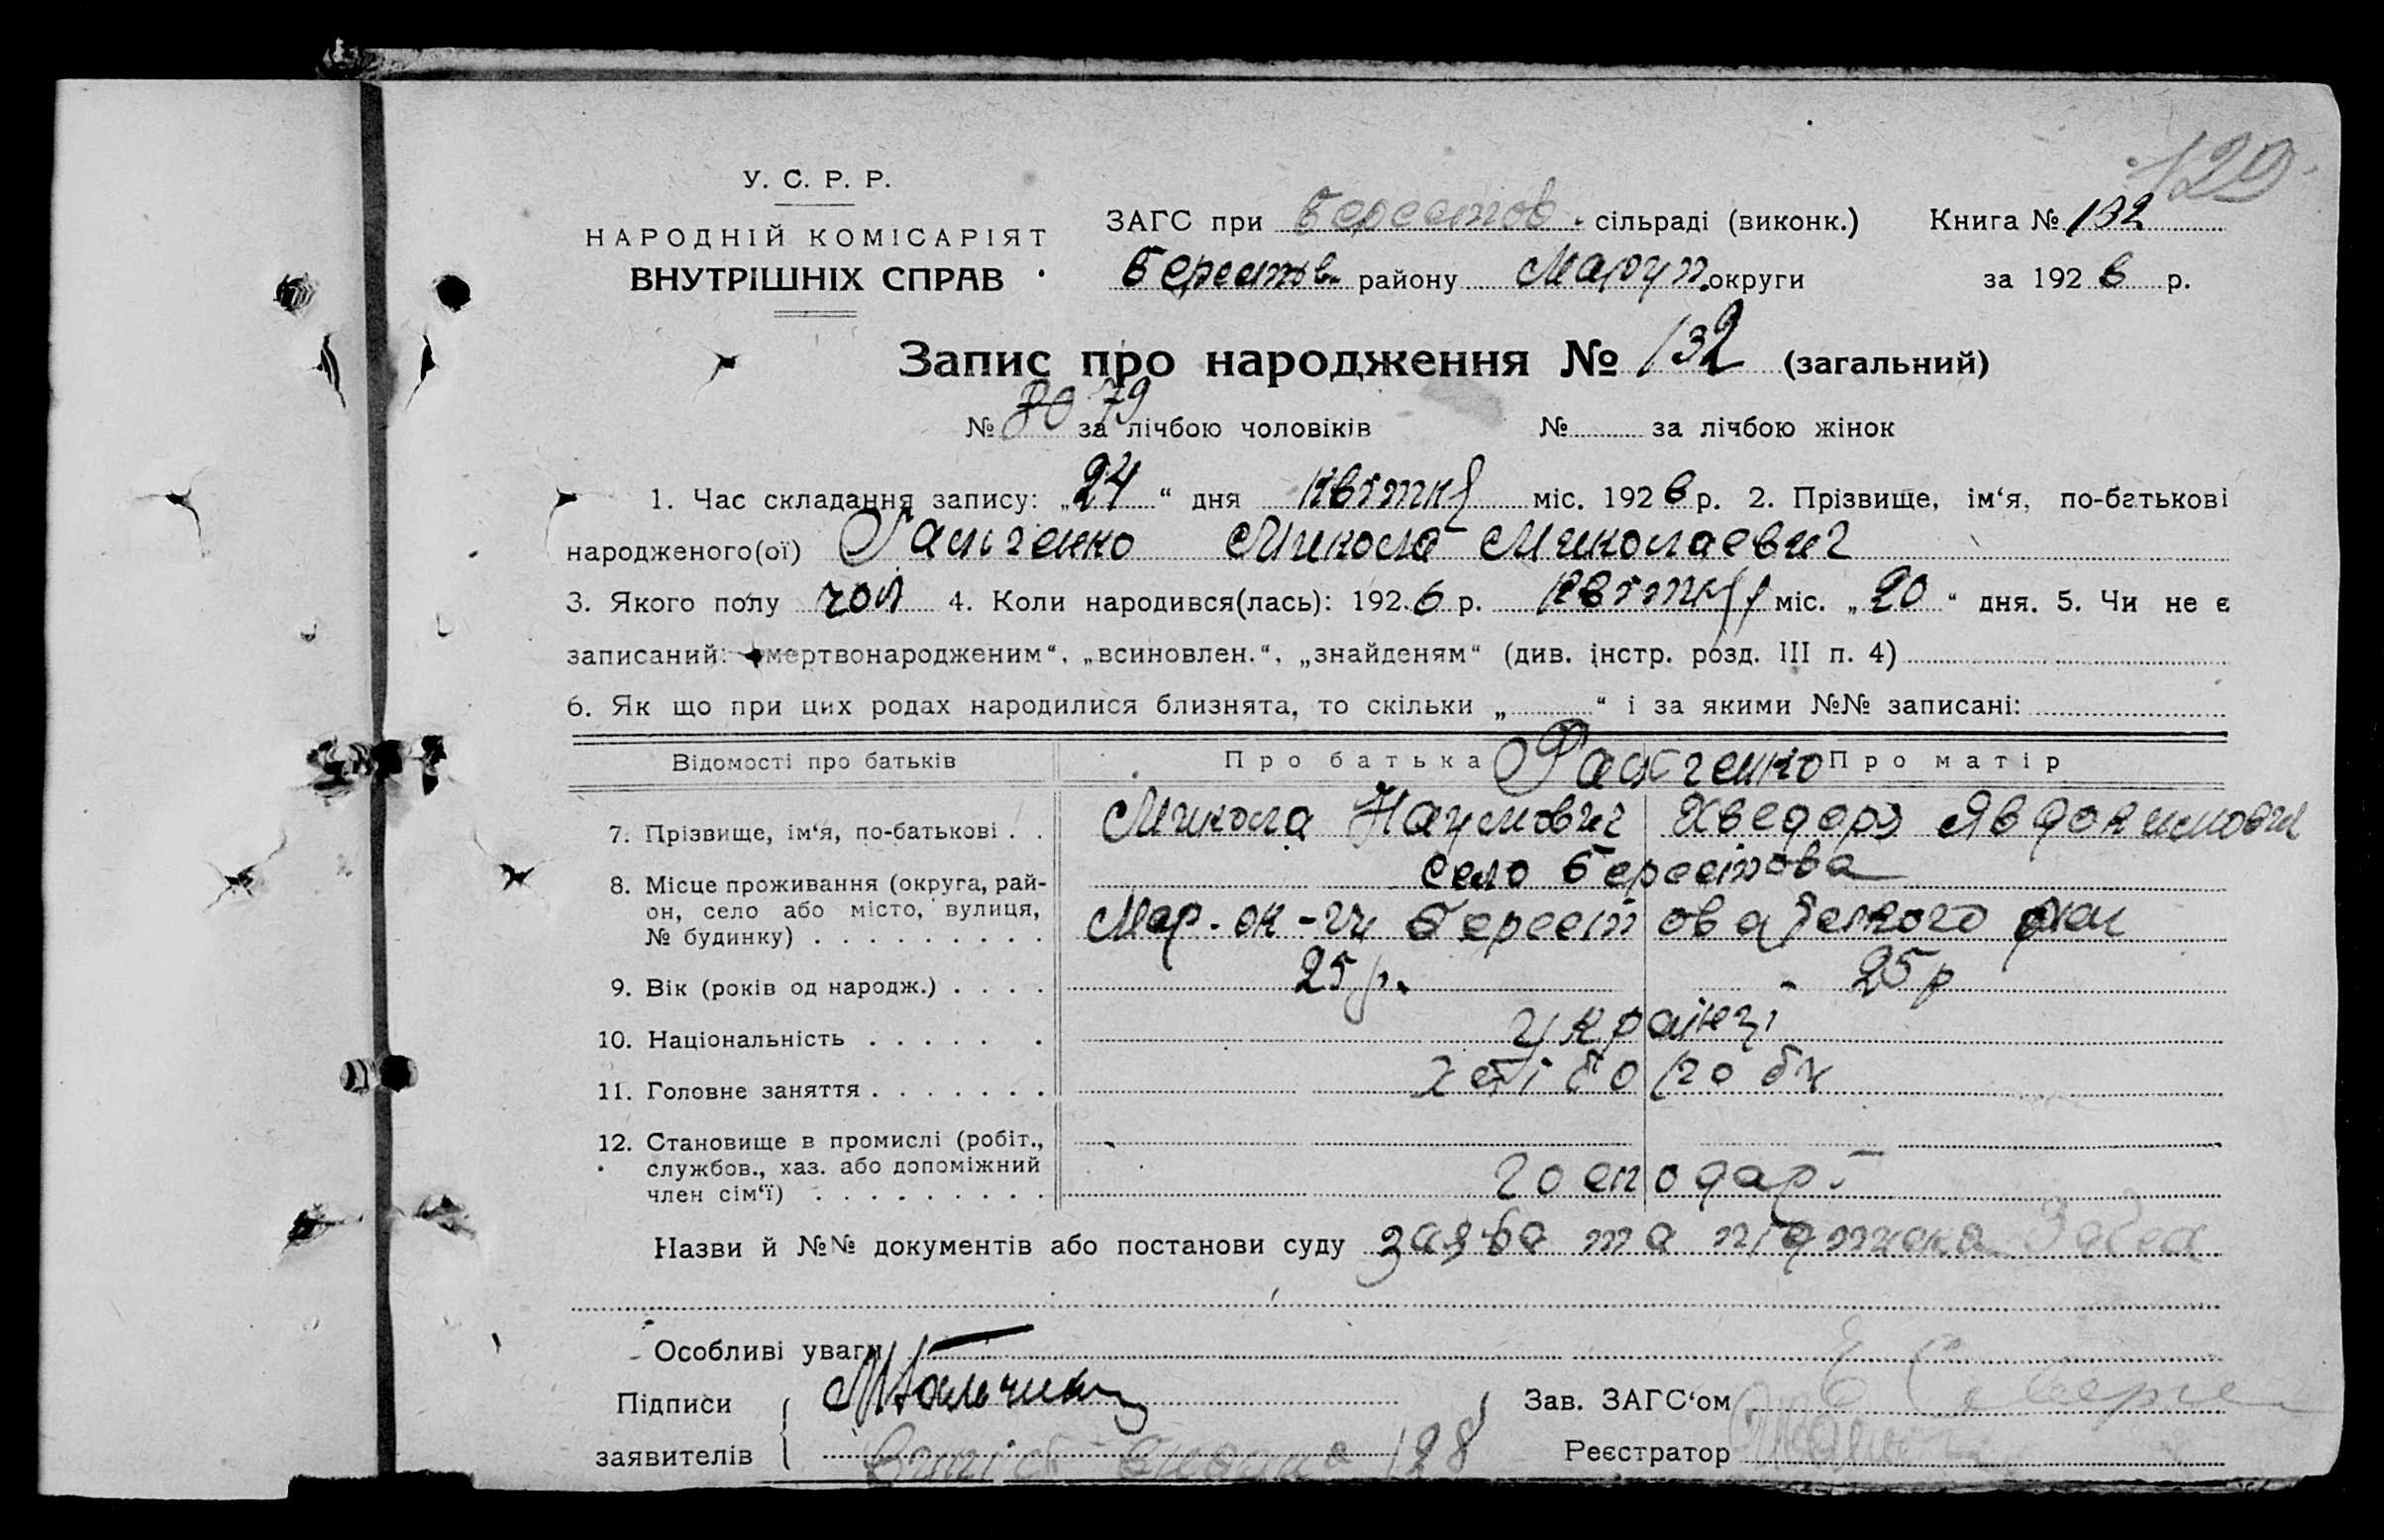 129
У. С. Р. Р.
НАРОДНІЙ КОМІСАРІЯТ
ВНУТРІШНІХ СПРАВ
ЗАГС при Берестов. сільраді (виконк.) Книга № 132
Берестов. району Маруп. округи за 1926 р.
Запис про народження № 132 (загальний)
№ 80 79 за лічбою чоловіків № за лічбою жінок
1. Час складання запису: „24“ дня квітня міс. 1926 р. 2. Прізвище, ім‘я, по-батькові
народженого(ої) Гальченко Микола Миколаевич
3. Якого полу чол 4. Коли народився(лась): 1926 р. квітня міс. „20“ дня. 5. Чи не є
записаний: „мертвонародженим“, „всиновлен.“, „знайденям“ (див. інстр. розд. III п. 4)
6. Як що при цих родах народилися близнята, то скільки „ “ і за якими №№ записані:
Відомості про батьків Про батька Гальченко Про матір
7. Прізвище, ім‘я, по-батькові . . Микола Наумович Хведора
8. Місце проживання (округа, рай-
он, село або місто, вулиця,
№ будинку) . . . . . . . . .
село Берестова
Мар. ок-ги Берестоваського
9. Вік (років од народж.) . . . . 25 р. 25 р
10. Національність . . . . . . українці
11. Головне заняття . . . . . . . хліборобы
12. Становище в промислі (робіт.,
службов., хаз. або допоміжний
член сім‘ї) . . . . . . . . .
господарі
Назви й №№ документів або постанови суду заява та підписка
Особливі уваги
Підписи
заявителів
Зав. ЗАГС‘ом
Реєстратор
128